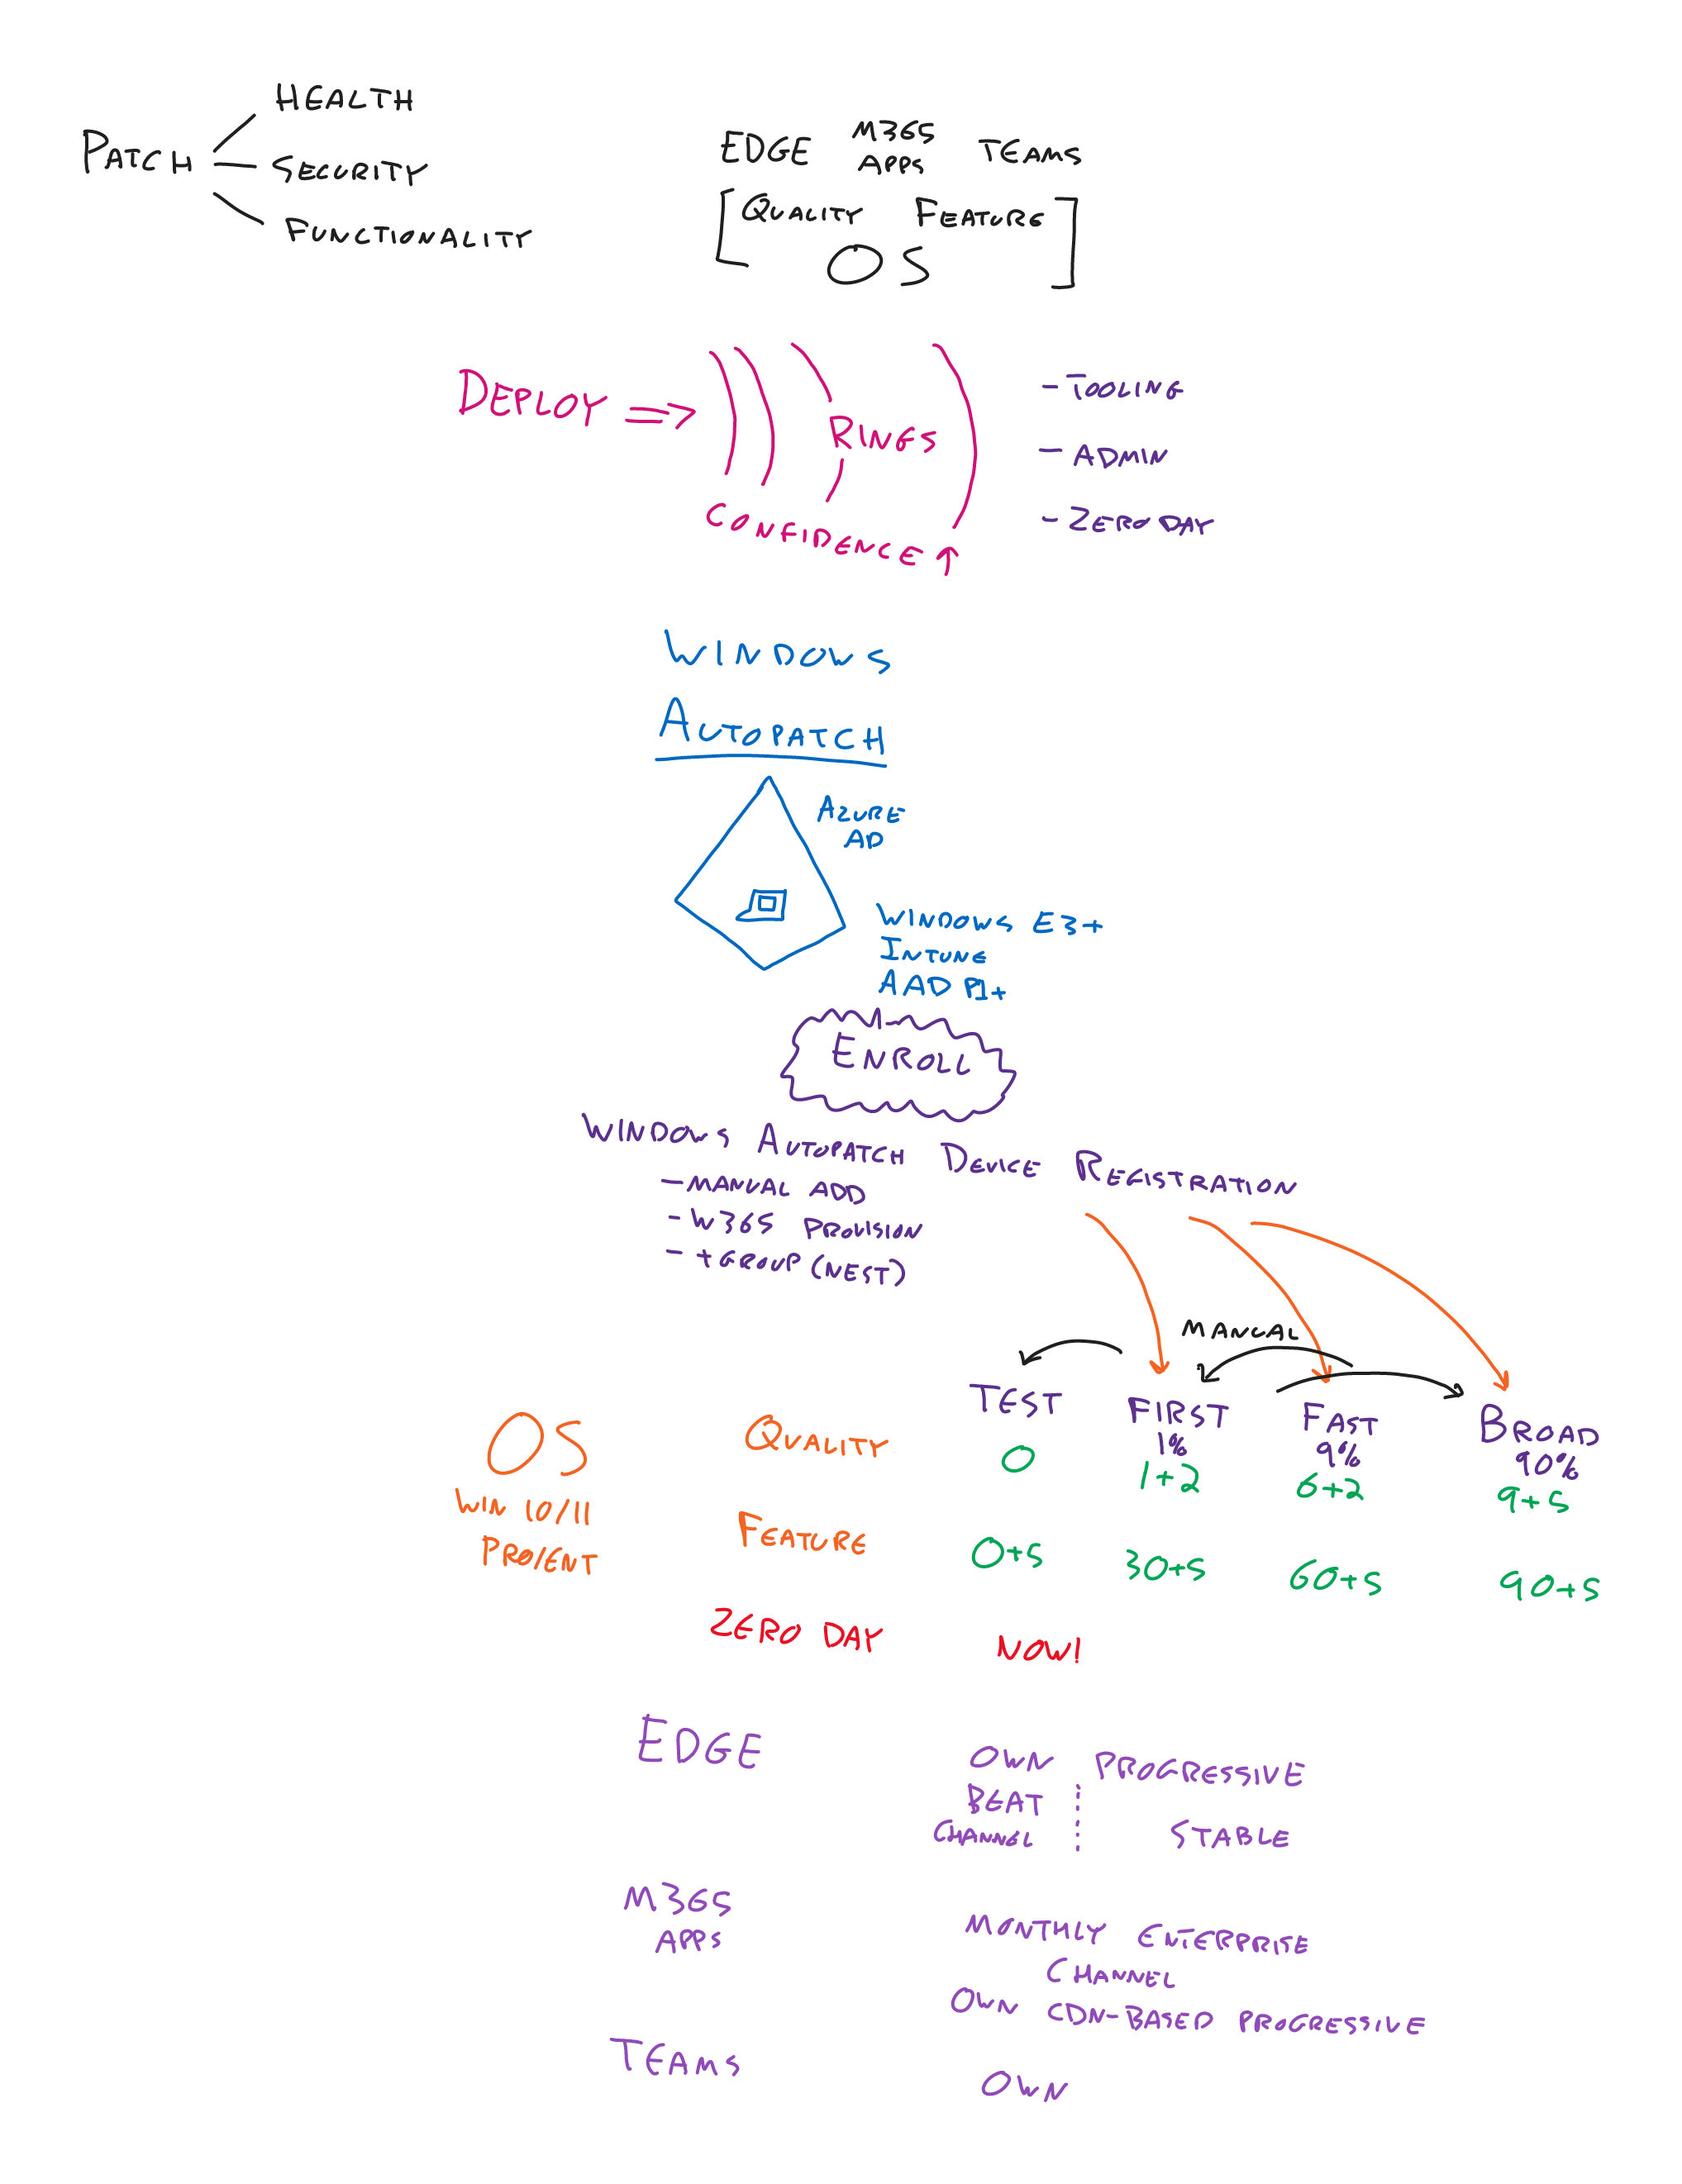 HEALTH
PATCH
SECURITY
FUNCTIONALITY
EDGE M365 APPS TEAMS
[QUALITY FEATURE]
OS
DEPLOY => RINGS
CONFIDENCE ↑
- TOOLING
- ADMIN
- ZERO DAY
WINDOWS
AUTOPATCH
AZURE
AD
WINDOWS E3+
INTUNE
AAD P1+
ENROLL
WINDOWS AUTOPATCH DEVICE REGISTRATION
- MANUAL ADD
- W365 PROVISION
- +GROUP (NEST)
MANUAL
TEST FIRST FAST BROAD
1% 9% 90%
OS
WIN 10/11
PRO/ENT
QUALITY 0 1+2 6+2 9+5
FEATURE 0+5 30+5 60+5 90+5
ZERO DAY NOW!
EDGE
OWN PROGRESSIVE
BEAT
CHANNEL STABLE
M365
APPS
MONTHLY ENTERPRISE
CHANNEL
OWN CDN-BASED PROGRESSIVE
TEAMS
OWN